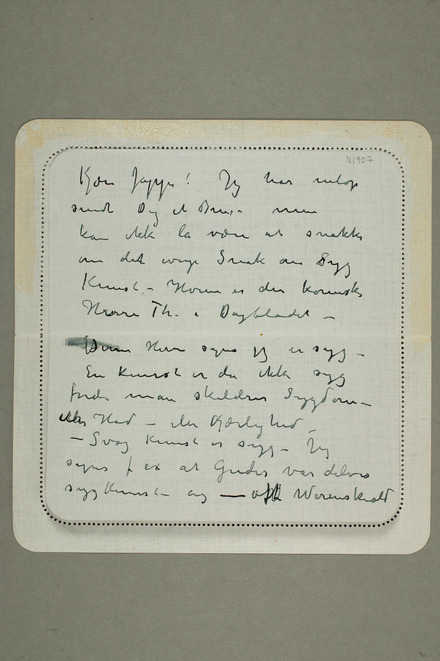 N1907
Kjære Jappe! Jeg har netop
sendt Dig et Brev men
kan ikke la være at snakke
om det evige Snak om Syg
Kunst – Hvem er den komiske
Herre Th. i Dagbladet –
Denne Herre synes jeg er syg –
En kunst er da ikke syg
fordi man skildrer Sygdom –
eller Had – eller Kjærlighed –
– Svag kunst er syg – Jeg
synes f ex at Gudes var delvis
syg Kunst – og — ofte Werenskiold